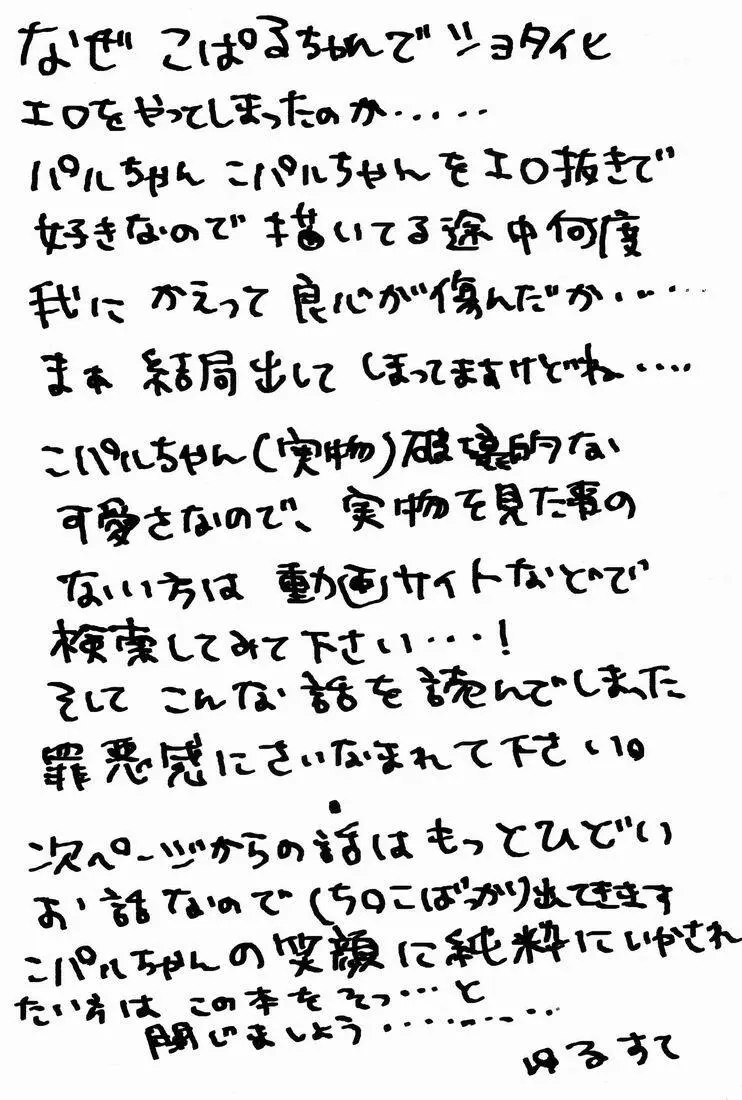 なぜ こぱるちゃんで ショタイヒ
エロをやってしまったのか・・・・・
パルちゃん こパルちゃんをエロ抜きで
好きなので 描いてる途中何度
我に かえって 良心が傷んだか・・・・
まぁ 結局出して しまってますけどね・・・・
こパルちゃん(実物)破壊的な
可愛さなので、実物を見た事の
ない方は 動画サイトなどで
検索してみて下さい・・・!
そして こんな話を読んでしまった
罪悪感にさいなまれて下さい。
次ページからの話は もっとひどい
お話なので(ち〇こばっかり)出てきます
こパルちゃんの笑顔に純粋にいかされ
たい方は この本をそっ・・・と
閉じましょう・・・・・・・・
ゆるすて